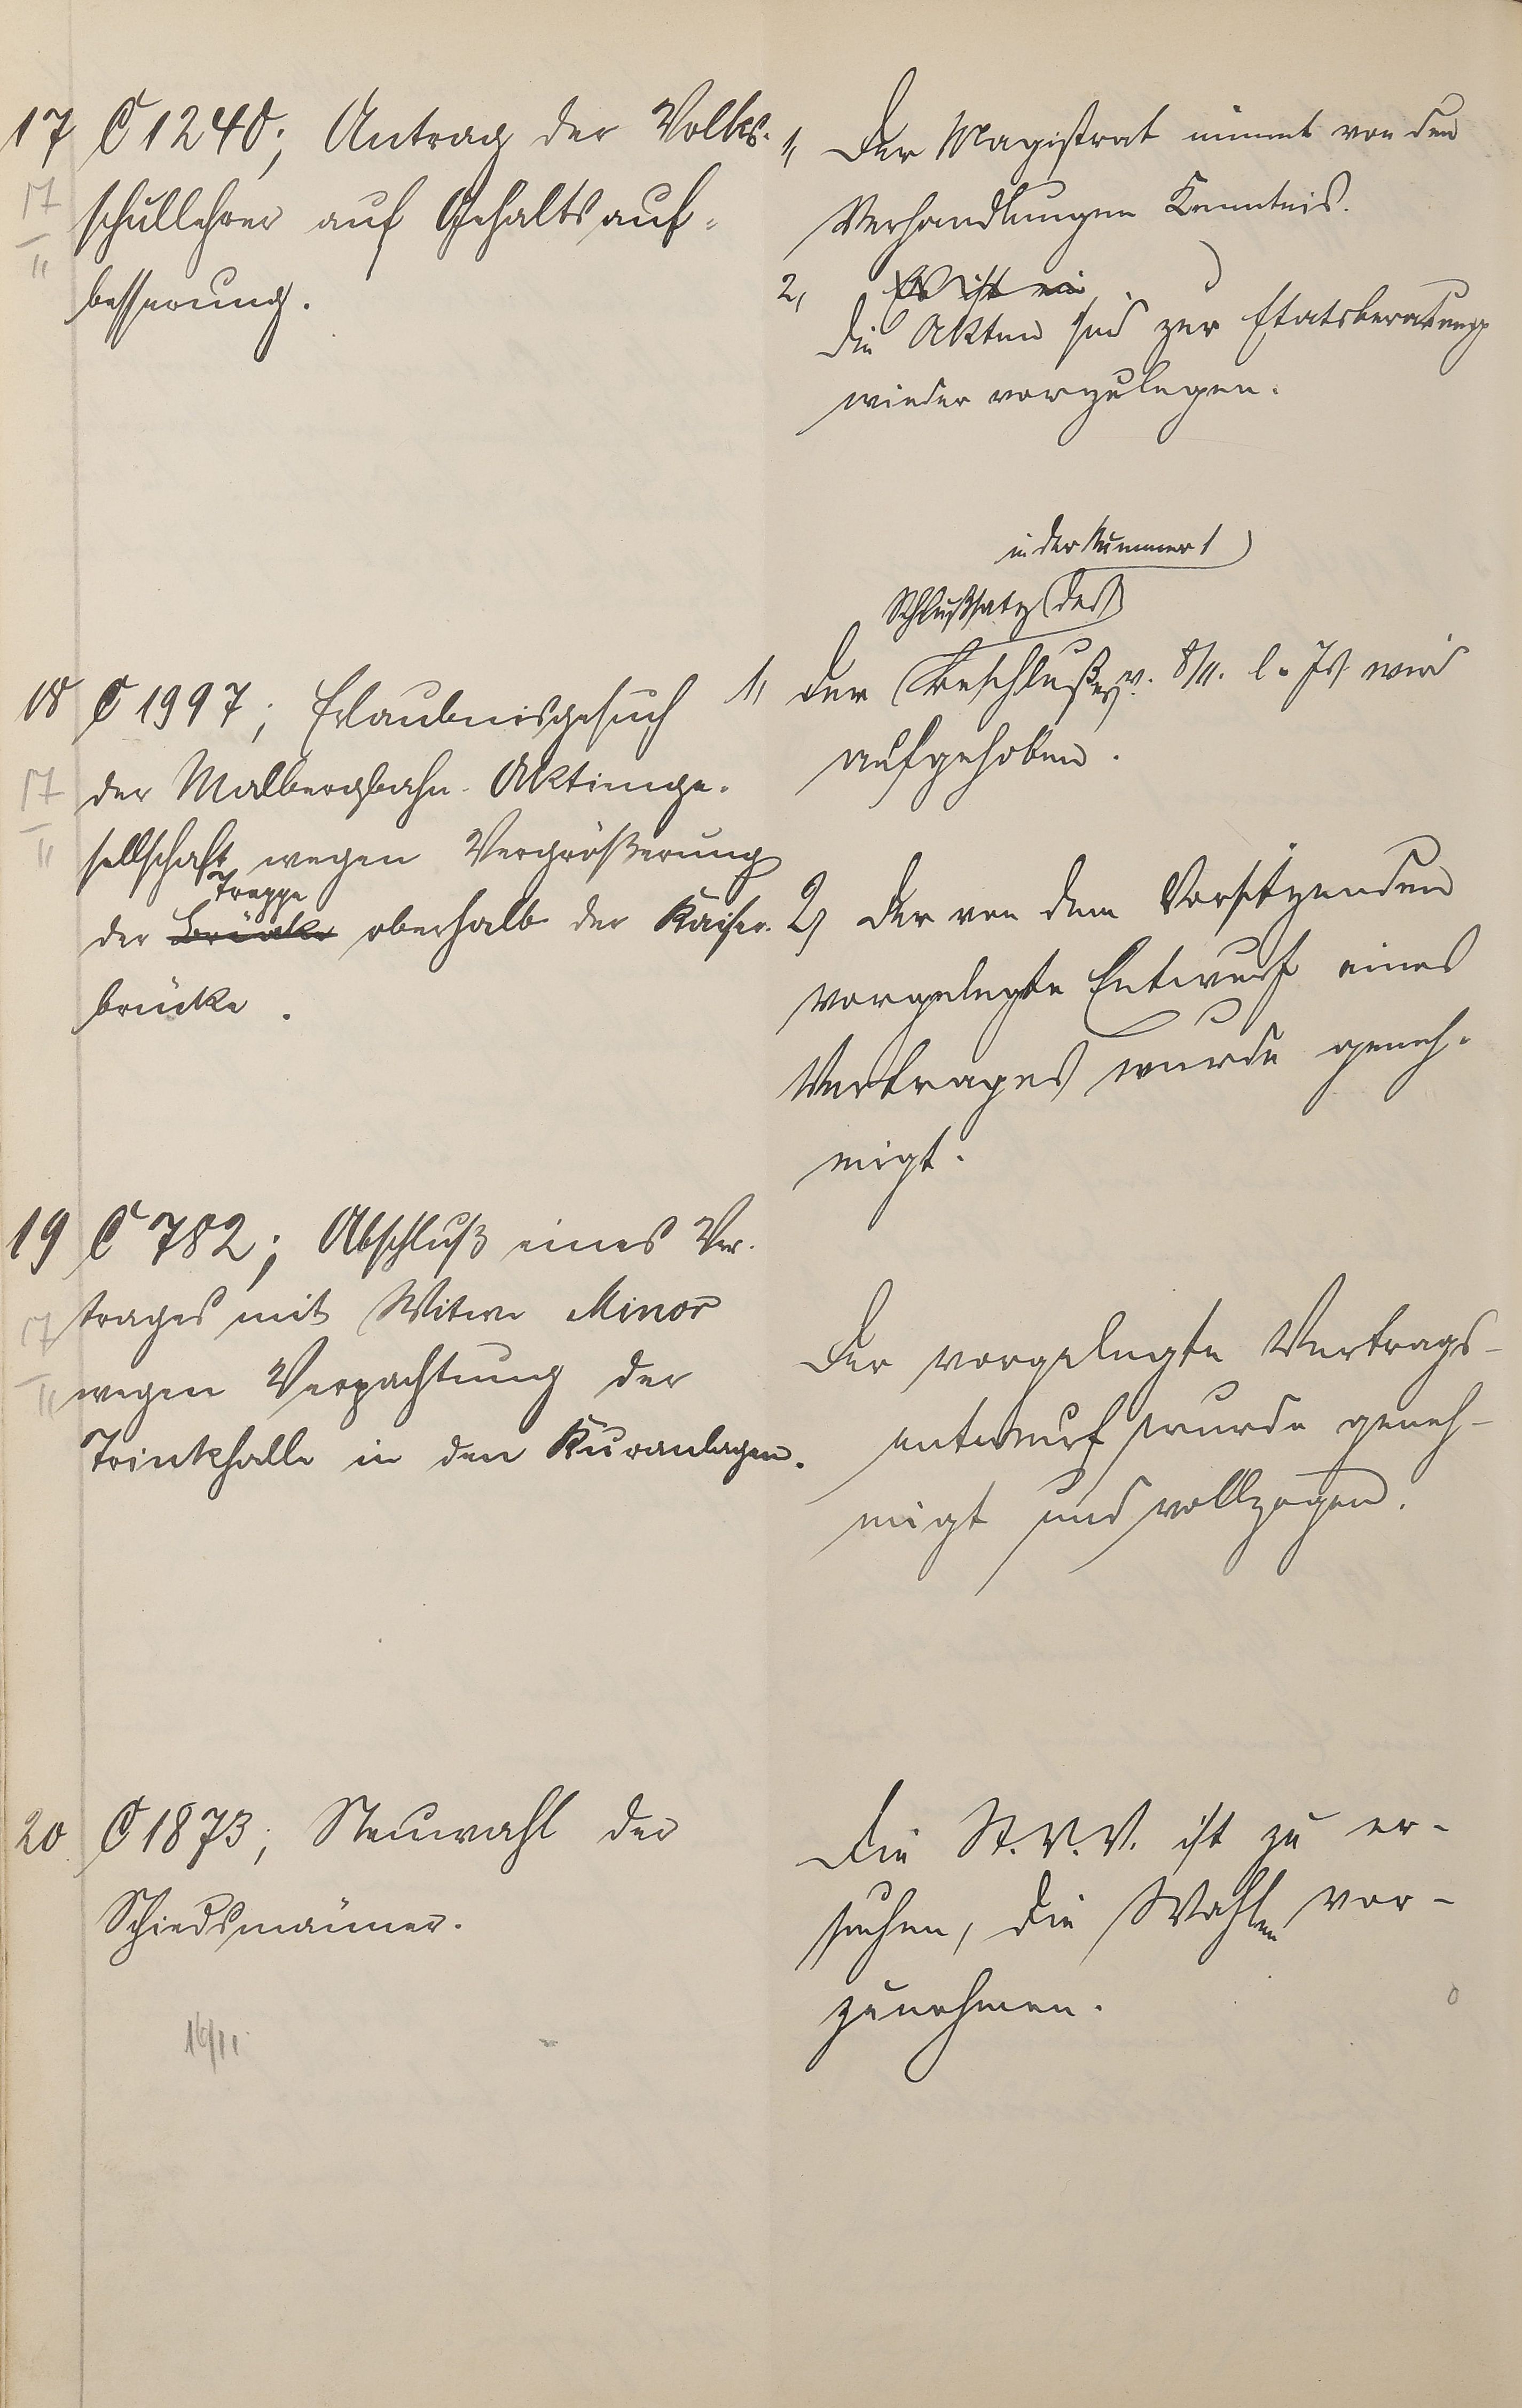 17 C 1240; Antrag der Volks-
17
II
schullehrer auf Gehaltsauf-
besserung.
1, Der Magistrat nimmt von den
Verhandlungen Kenntnis.
2, Es ist ein
Die Akten sind zur Etatsberatung
wieder vorzulegen.
18 C 1997; Erlaubnisgesuch
17
II
der Malbergbahn-Aktienge-
sellschaft wegen Vergrößerung
Treppe
der Brücke oberhalb der Kaiser-
brücke.
in der Nummer 1
Schlußsatz des
1, Der Beschlußes v. 8/11. l. Js wird
aufgehoben.
2, Der von dem Vorsitzenden
vorgelegte Entwurf eines
Vertrages wurde geneh-
migt.
19 C 782; Abschluß eines Ver-
17
II
trages mit Witwe Minor
wegen Verpachtung der
Trinkhalle in den Kuranlagen.
Der vorgelegte Vertrags-
entwurf wurde geneh-
migt und vollzogen.
20 C 1873; Neuwahl der
Schiedsmänner.
16/11.
Die St.V.V. ist zu er-
suchen, die Wahlen vor-
zunehmen.